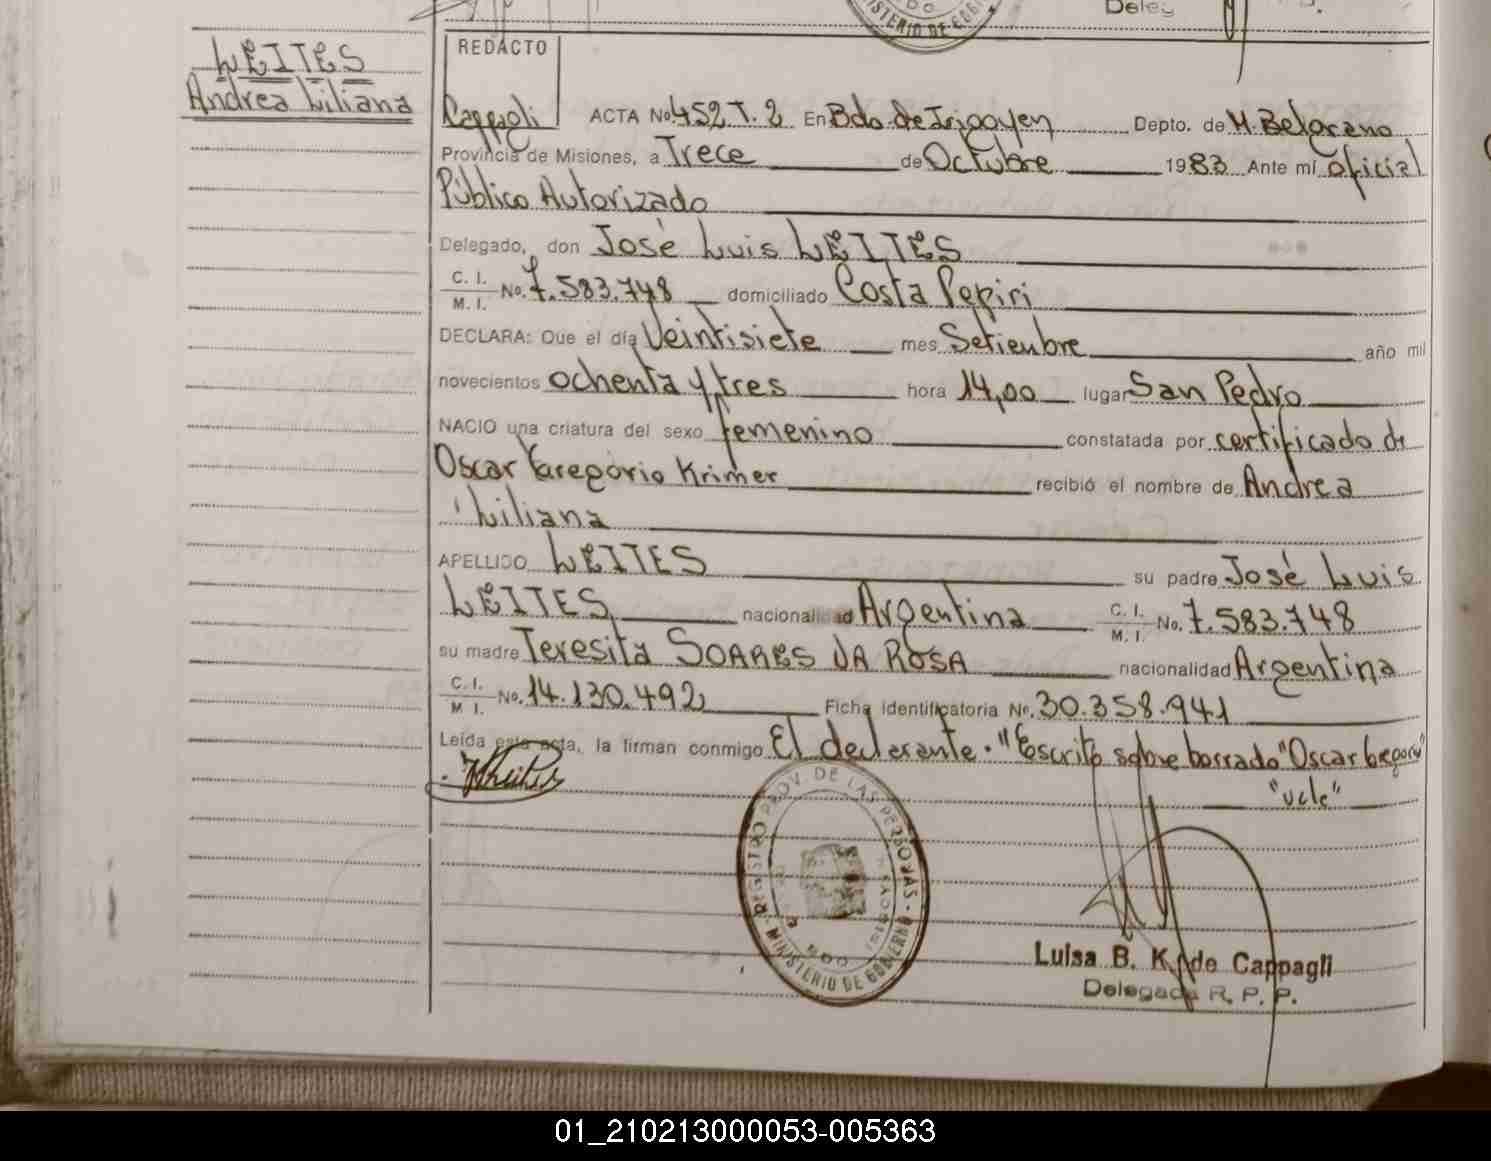 MINISTERIO DE GOBI
Deleg
LEITES
Andrea Liliana
REDACTO
Cappagli
ACTA No 452 T. 2 En Bdo de Irigoyen Depto. de M. Belgrano
Provincia de Misiones, a Trece de Octubre 1983 Ante mí oficial
Público Autorizado
Delegado, don José Luis LEITES
C. I. M. I. No. 7.583.748 domiciliado Costa Pepiri
DECLARA: Que el día Veintisiete mes Setiembre año mil
novecientos ochenta y tres hora 14,00 lugar San Pedro
NACIO una criatura del sexo femenino constatada por certificado de
Oscar Gregorio Krimer recibió el nombre de Andrea
Liliana
APELLIDO LEITES su padre José Luis
LEITES nacionalidad Argentina C. I. M. I. No. 7.583.748
su madre Teresita SOARES DA ROSA nacionalidad Argentina
C. I. M I. No. 14.130.492 Ficha Identificatoria No. 30.358.941
Leída esta acta, la firman conmigo El declarante. "Escrito sobre borrado "Oscar Gregorio"
"vale"
REGISTRO PROV. DE LAS PERSONAS
MINISTERIO DE GOBIERNO
Luisa B. K. de Cappagli
Delegada R. P. P.
01_210213000053-005363